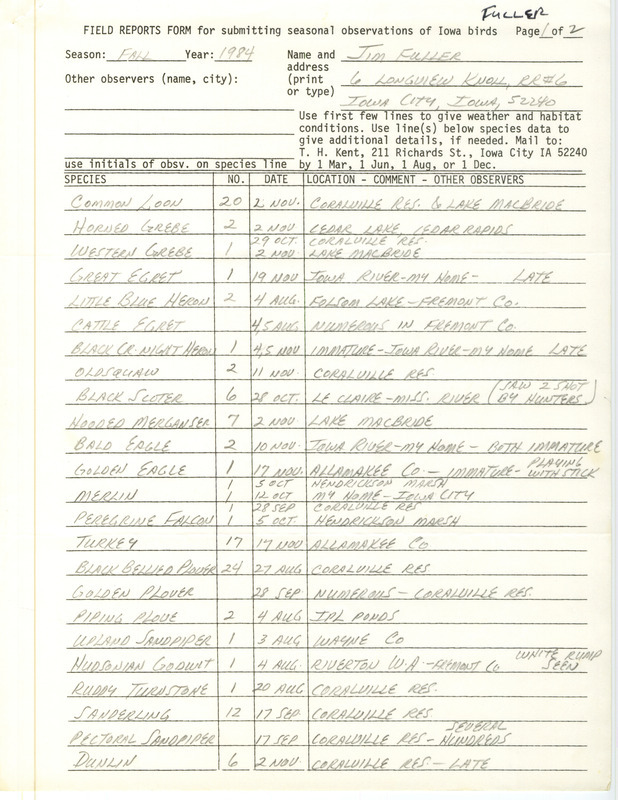 FULLER
FIELD REPORTS FORM for submitting seasonal observations of Iowa birds Page 1 of 2
Season: FALL Year: 1984 Name and JIM FULLER
address
Other observers (name, city): (print 6 LONGVIEW KNOLL, RR#6
or type) IOWA CITY, IOWA, 52240
Use first few lines to give weather and habitat
conditions. Use line(s) below species data to
give additional details, if needed. Mail to:
T. H. Kent, 211 Richards St., Iowa City IA 52240
use initials of obsv. on species line by 1 Mar, 1 Jun, 1 Aug, or 1 Dec.
SPECIES NO. DATE LOCATION - COMMENT - OTHER OBSERVERS
COMMON LOON 20 2 NOV. CORALVILLE RES. & LAKE MACBRIDE
HORNED GREBE 2 2 NOV CEDAR LAKE, CEDAR RAPIDS
29 OCT. CORALVILLE RES.
WESTERN GREBE 1 2 NOV. LAKE MACBRIDE
GREAT EGRET 1 19 NOV IOWA RIVER-MY HOME- LATE
LITTLE BLUE HERON 2 4 AUG. FOLSOM LAKE-FREMONT CO.
CATTLE EGRET 4,5 AUG NUMEROUS IN FREMONT CO.
BLACK CR. NIGHT HERON 1 4,5 NOV IMMATURE-IOWA RIVER-MY HOME LATE
OLDSQUAW 2 11 NOV. CORALVILLE RES
BLACK SCOTER 6 28 OCT. LE CLAIRE-MISS. RIVER (SAW 2 SHOT
BY HUNTERS)
HOODED MERGANSER 7 2 NOV LAKE MACBRIDE
BALD EAGLE 2 10 NOV. IOWA RIVER-MY HOME - BOTH IMMATURE
GOLDEN EAGLE 1 17 NOV. ALLAMAKEE CO - IMMATURE- PLAYING
WITH STICK
1 5 OCT HENDRICKSON MARSH
MERLIN 1 12 OCT MY HOME-IOWA CITY
1 28 SEP CORALVILLE RES
PEREGRINE FALCON 1 5 OCT. HENDRICKSON MARSH
TURKEY 17 17 NOV ALLAMAKEE CO
BLACK BELLIED PLOVER 24 27 AUG CORALVILLE RES
GOLDEN PLOVER 28 SEP NUMEROUS - CORALVILLE RES.
PIPING PLOVE 2 4 AUG IPL PONDS
UPLAND SANDPIPER 1 3 AUG WAYNE CO
HUDSONIAN GODWIT 1 4 AUG. RIVERTON W.A.-FREMONT CO WHITE RUMP
SEEN
RUDDY TURNSTONE 1 20 AUG CORALVILLE RES.
SANDERLING 12 17 SEP CORALVILLE RES.
PECTORAL SANDPIPER 17 SEP CORALVILLE RES - SEVERAL
HUNDREDS
DUNLIN 6 2 NOV. CORALVILLE RES. - LATE